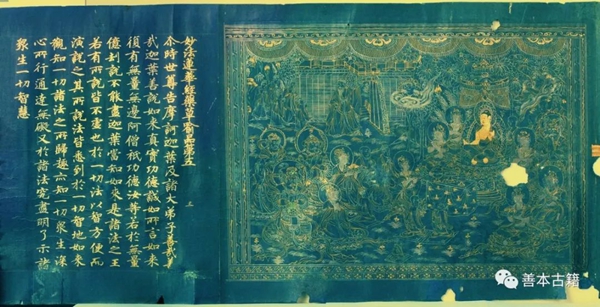 妙法蓮華經藥草喻品第五
尒時世尊告摩訶迦葉及諸大弟子善哉善
哉迦葉善說如來真實功德誠如所言如來
復有無量無邊阿僧祇功德汝等若於無量
億劫說不能盡迦葉當知如來是諸法之王
若有所說皆不虛也於一切法以智方便而
演說之其所說法皆悉到於一切智地如來
觀知一切諸法之所歸趣亦知一切衆生深
心所行通達無礙又於諸法究盡明了示諸
衆生一切智慧
三
善本古籍